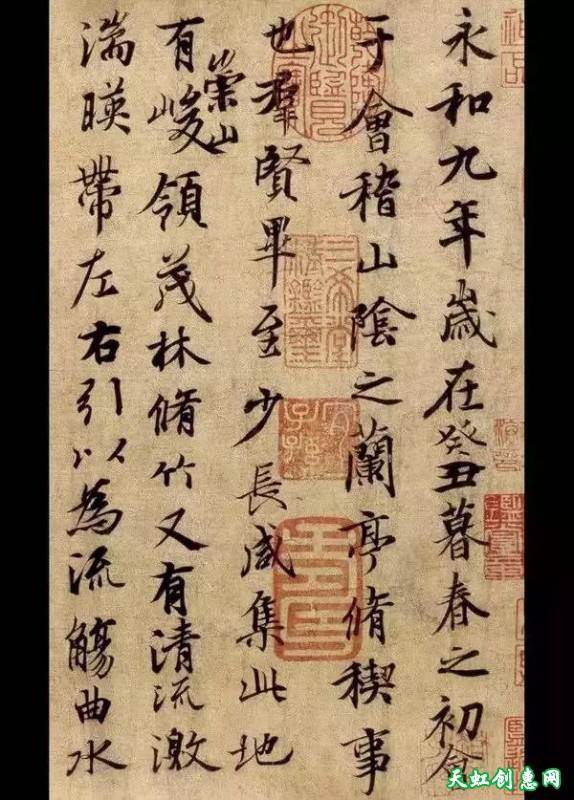 永和九年歲在癸丑暮春之初會
于會稽山陰之蘭亭脩稧事
也羣賢畢至少長咸集此地
有崇山峻領茂林脩竹又有清流激
湍暎帶左右引以為流觴曲水
三希堂精鑑璽
宜子孫
天虹创惠网